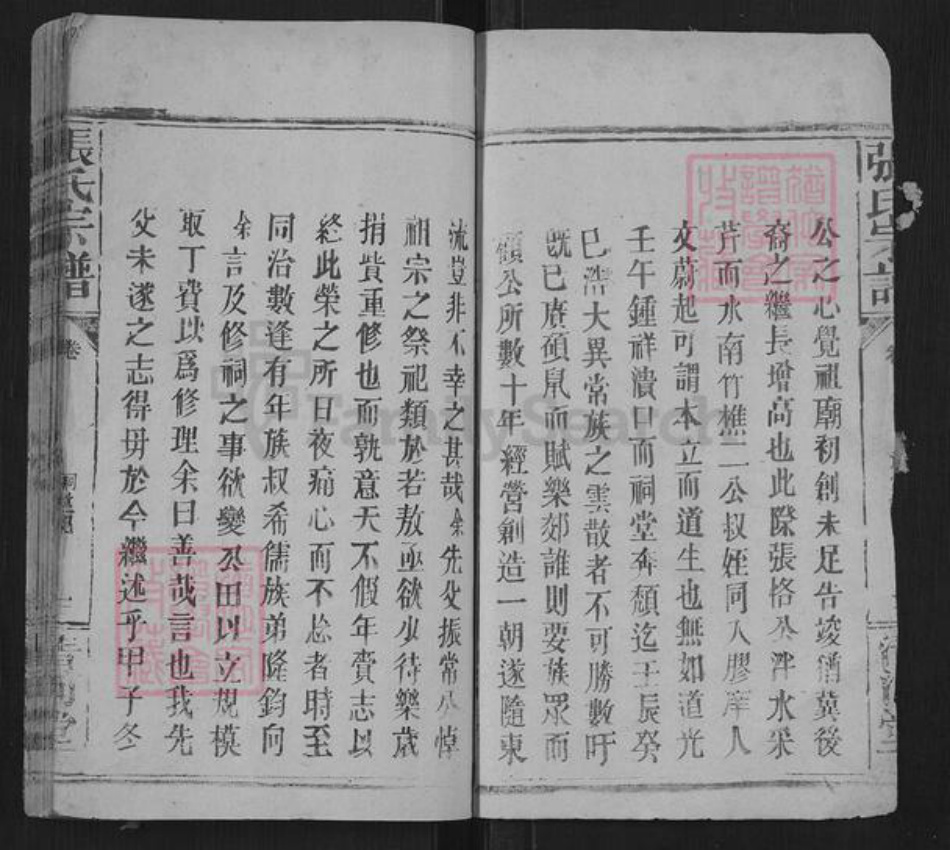 公之心覺祖廟初創未足告竣猶冀後
裔之繼長增高也此際張恪公泮水采
芹而水南竹樵二公叔姪同入膠庠人
文蔚起可謂本立而道生也無如道光
壬午鍾祥潰口而祠堂奔頹迄壬辰癸
巳浩大異常族之雲散者不可勝數吁
既已賡碩鼠而賦樂郊誰則要族眾而
領公所數十年經營創造一朝遂隨東
流豈非不幸之甚哉余先父振常公悼
祖宗之祭祀類於若敖亟欲少待樂歲
捐貲重修也而孰意天不假年賫志以
終此榮之所日夜痛心而不忘者時至
同治數逢有年族叔希儒族弟隆鈞向
余言及修祠之事欲變公田以立規模
取丁費以爲修理余曰善哉言也我先
父未遂之志得毋於今繼述乎甲子冬
張氏宗譜
卷
張氏宗譜
FamilySearch